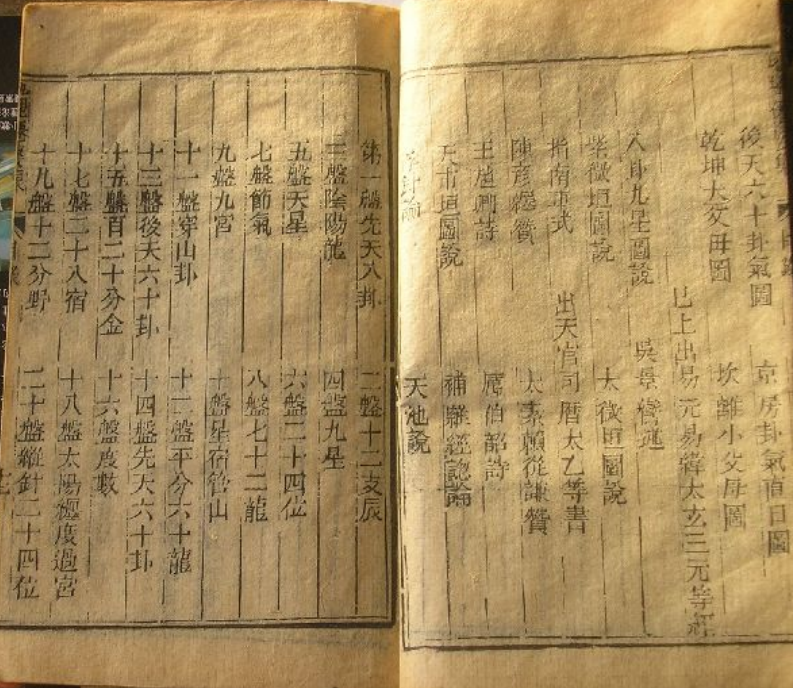 後天六十卦氣圖 京房卦氣直日圖
乾坤大父母圖 坎離小父母圖
已上出易元易緯太玄三元等經
九星圖說 吳景鸞述
紫微垣圖說 太微垣圖說
指南正式 出天官司曆太乙等書
陳彥 贊 太素賴從謙贊
王 卿詩 厲伯韶詩
天市垣圖說 補難經總論
針論 天池說
第一盤先天八卦 二盤十二支辰
三盤陰陽龍 四盤九星
五盤天星 六盤二十四位
七盤節氣 八盤七十二龍
九盤九宮 十盤星宿管山
十一盤穿山卦 十二盤平分六十龍
十三盤後天六十卦 十四盤先天六十卦
十五盤百二十分金 十六盤度數
十七盤二十八宿 十八盤太陽躔度過宮
十九盤十二分野 二十盤縫針二十四位
目錄